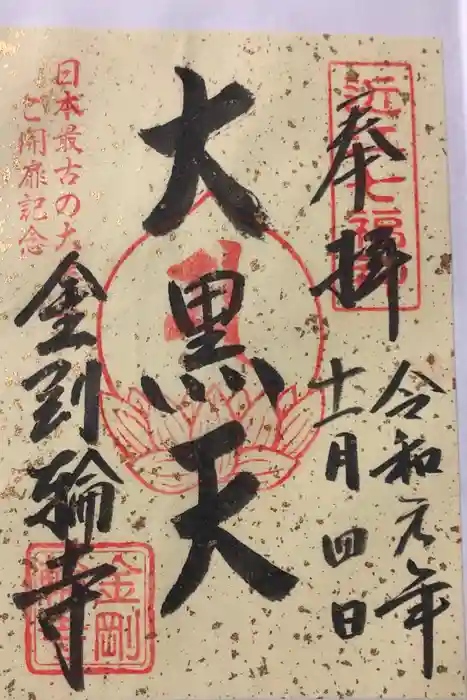 近江七福神
奉拝
令和元年
十一月四日
大黒天
日本最古の大
ご開扉記念
金剛輪寺
金剛輪寺